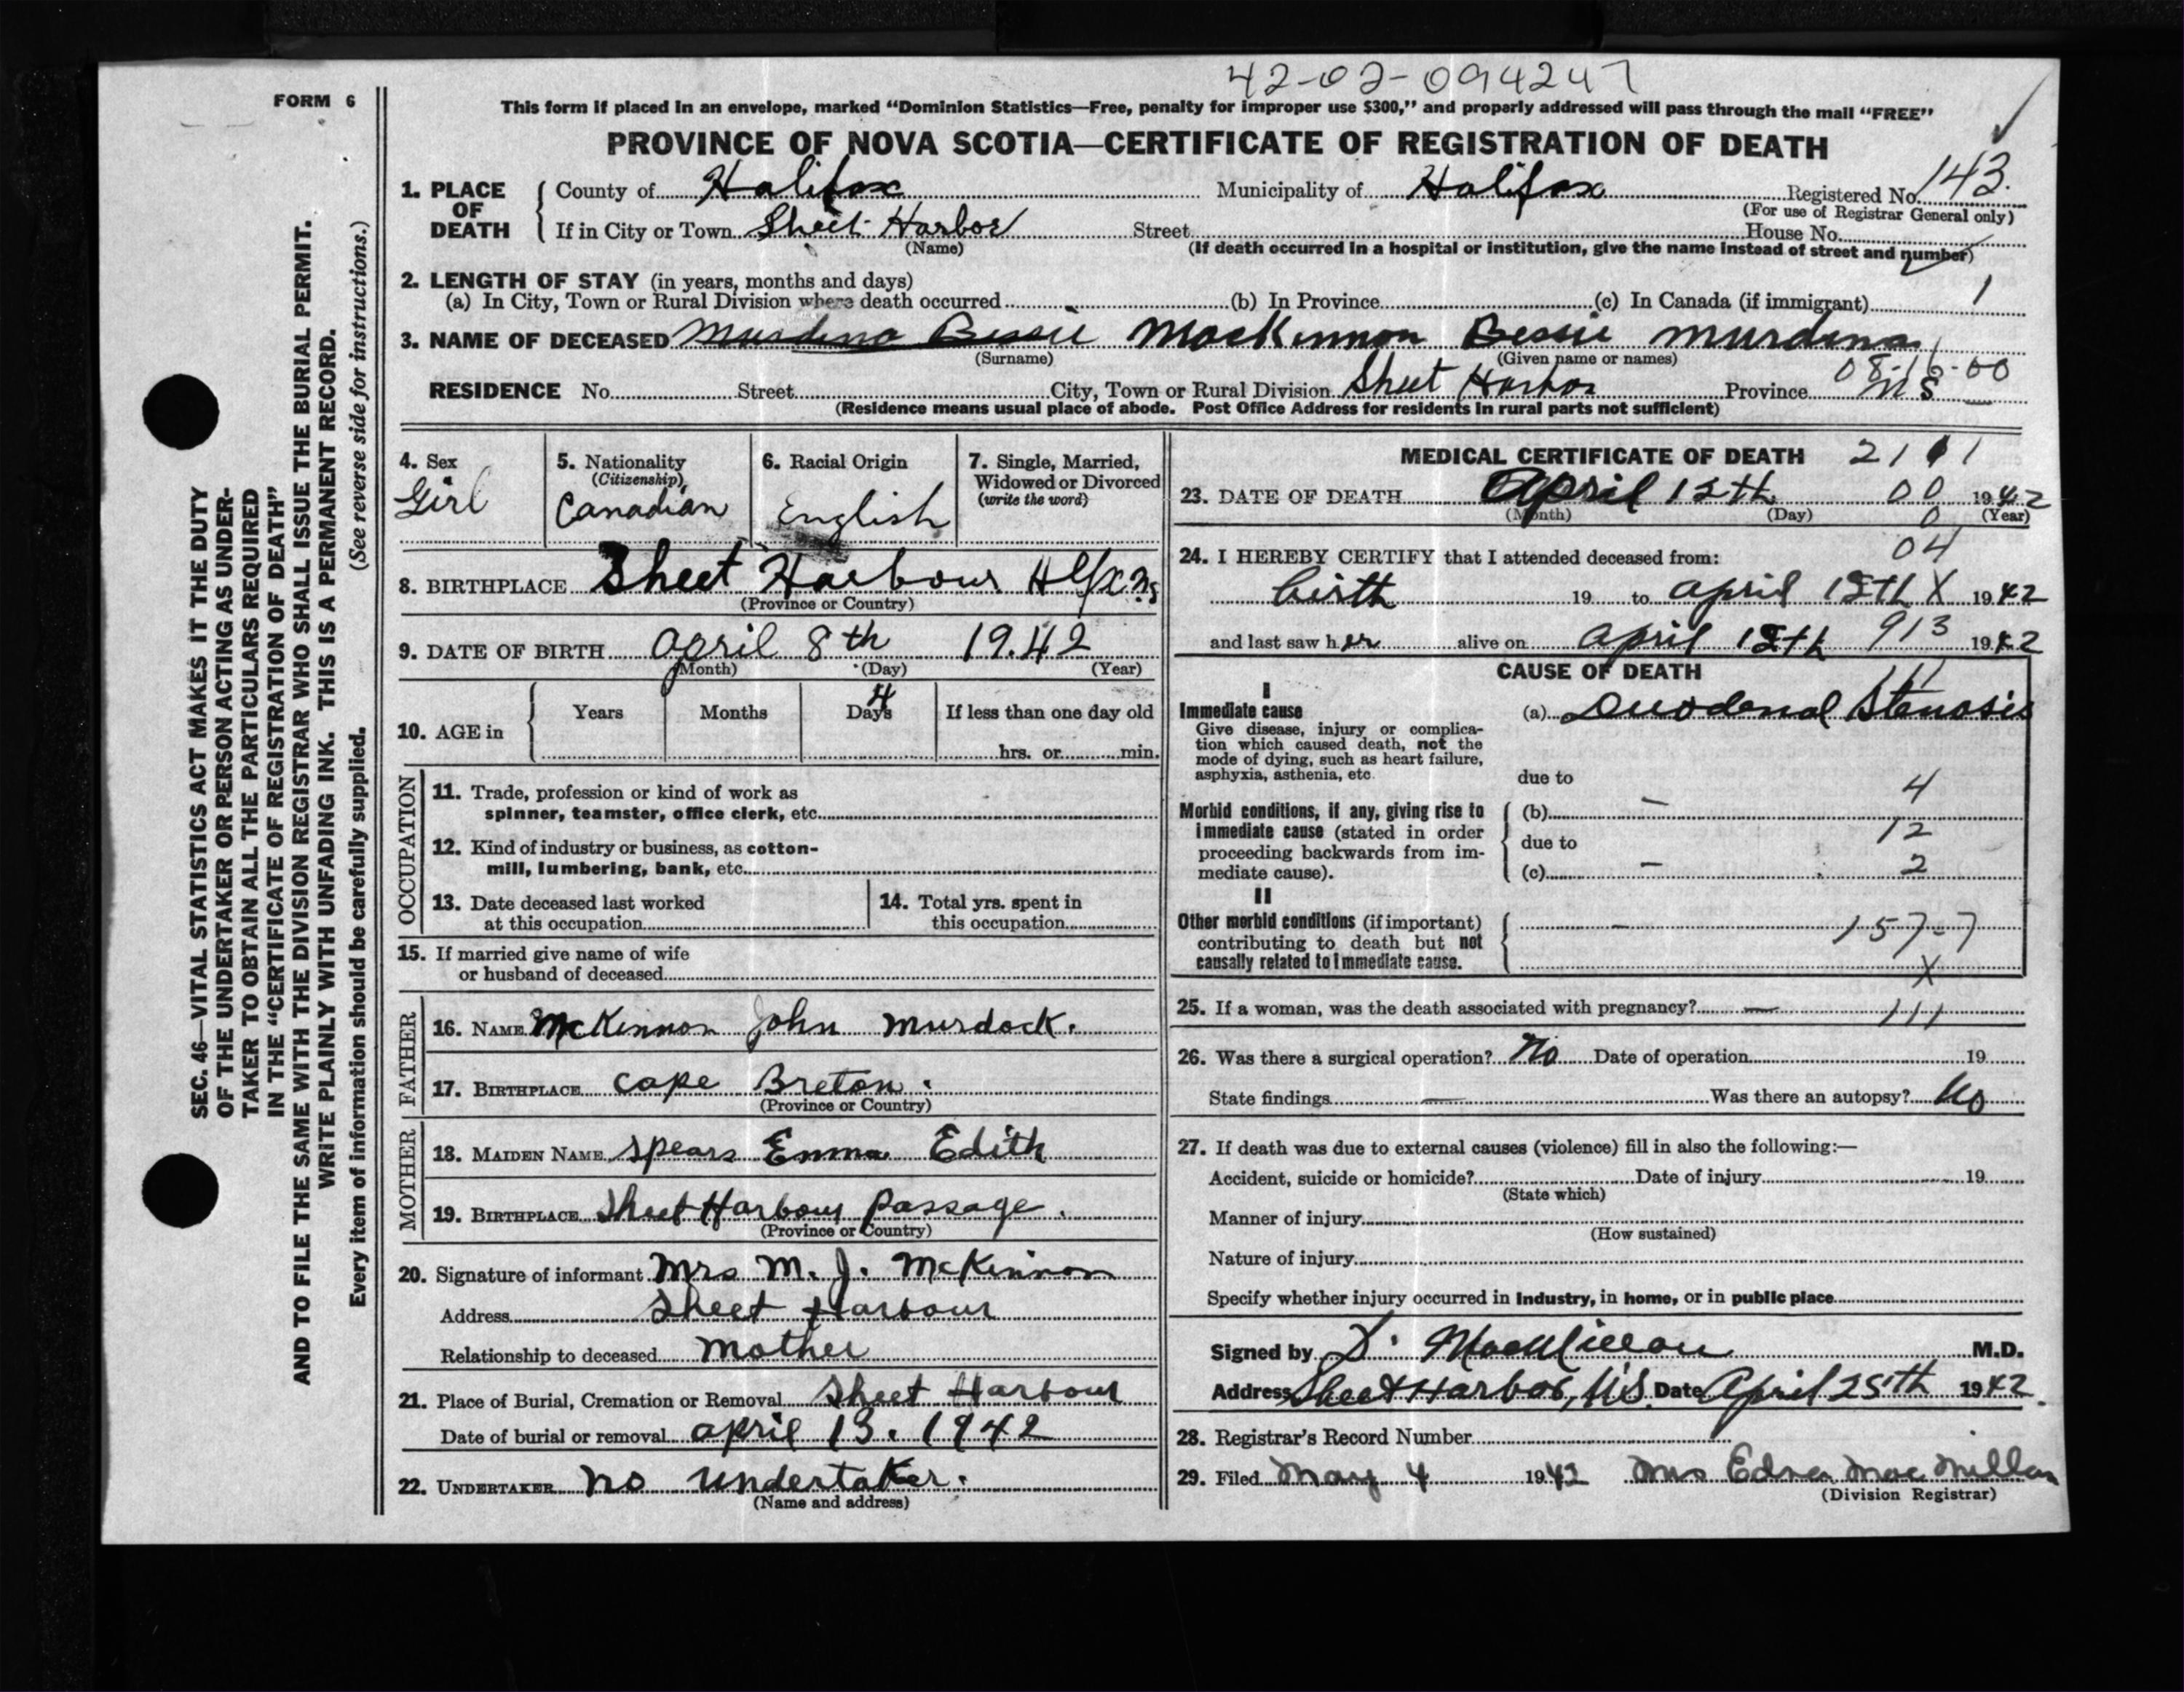 42-02-094247
FORM 6
This form if placed in an envelope, marked "Dominion Statistics—Free, penalty for improper use $300," and properly addressed will pass through the mail "FREE"
PROVINCE OF NOVA SCOTIA—CERTIFICATE OF REGISTRATION OF DEATH
1. PLACE OF DEATH County of Halifax Municipality of Halifax Registered No. 143.
(For use of Registrar General only)
If in City or Town Sheet Harbor Street House No.
(Name) (If death occurred in a hospital or institution, give the name instead of street and number)
2. LENGTH OF STAY (in years, months and days)
(a) In City, Town or Rural Division where death occurred (b) In Province (c) In Canada (if immigrant) 1
3. NAME OF DECEASED Murdena Bessie MacKinnon Bessie Murdena
(Surname) (Given name or names)
08-16-00
RESIDENCE No. Street City, Town or Rural Division Sheet Harbor Province NS
(Residence means usual place of abode. Post Office Address for residents in rural parts not sufficient)
4. Sex
Girl
5. Nationality
(Citizenship)
Canadian
6. Racial Origin
English
7. Single, Married,
Widowed or Divorced
(write the word)
8. BIRTHPLACE Sheet Harbour Hlfx NS
(Province or Country)
9. DATE OF BIRTH April 8th 19.42
(Month) (Day) (Year)
10. AGE in Years Months Days If less than one day old
4
hrs. or min.
OCCUPATION
11. Trade, profession or kind of work as
spinner, teamster, office clerk, etc.
12. Kind of industry or business, as cotton-
mill, lumbering, bank, etc.
13. Date deceased last worked
at this occupation
14. Total yrs. spent in
this occupation
15. If married give name of wife
or husband of deceased
FATHER
16. NAME McKinnon John Murdock.
17. BIRTHPLACE Cape Breton.
(Province or Country)
MOTHER
18. MAIDEN NAME Spears Emma Edith
19. BIRTHPLACE Sheet Harbour Passage.
(Province or Country)
20. Signature of informant Mrs M. J. McKinnon
Address Sheet Harbour
Relationship to deceased Mother
21. Place of Burial, Cremation or Removal Sheet Harbour
Date of burial or removal April 13. 1942
22. UNDERTAKER No undertaker.
(Name and address)
MEDICAL CERTIFICATE OF DEATH 2111
23. DATE OF DEATH April 12th 00 1942
(Month) (Day) 0 (Year)
04
24. I HEREBY CERTIFY that I attended deceased from:
birth 19 to April 12th X 1942
and last saw her alive on April 12th 913 1942
CAUSE OF DEATH
111
I
Immediate cause
Give disease, injury or complica-
tion which caused death, not the
mode of dying, such as heart failure,
asphyxia, asthenia, etc.
(a) Duodenal Stenosis
due to
4
Morbid conditions, if any, giving rise to
immediate cause (stated in order
proceeding backwards from im-
mediate cause).
(b) –
due to 12
(c) – 2
II
Other morbid conditions (if important)
contributing to death but not
causally related to immediate cause.
– 157-7
X
25. If a woman, was the death associated with pregnancy? — 111
26. Was there a surgical operation? No Date of operation 19
State findings — Was there an autopsy? No
27. If death was due to external causes (violence) fill in also the following:—
Accident, suicide or homicide? Date of injury 19
(State which)
Manner of injury
(How sustained)
Nature of injury
Specify whether injury occurred in industry, in home, or in public place
Signed by D. MacMillan M.D.
Address Sheet Harbor, N.S. Date April 25th 1942.
28. Registrar's Record Number
29. Filed May 4 1942 Mrs Edna MacMillan
(Division Registrar)
SEC. 46—VITAL STATISTICS ACT MAKES IT THE DUTY
OF THE UNDERTAKER OR PERSON ACTING AS UNDER-
TAKER TO OBTAIN ALL THE PARTICULARS REQUIRED
IN THE "CERTIFICATE OF REGISTRATION OF DEATH"
AND TO FILE THE SAME WITH THE DIVISION REGISTRAR WHO SHALL ISSUE THE BURIAL PERMIT.
WRITE PLAINLY WITH UNFADING INK. THIS IS A PERMANENT RECORD.
Every item of information should be carefully supplied. (See reverse side for instructions.)